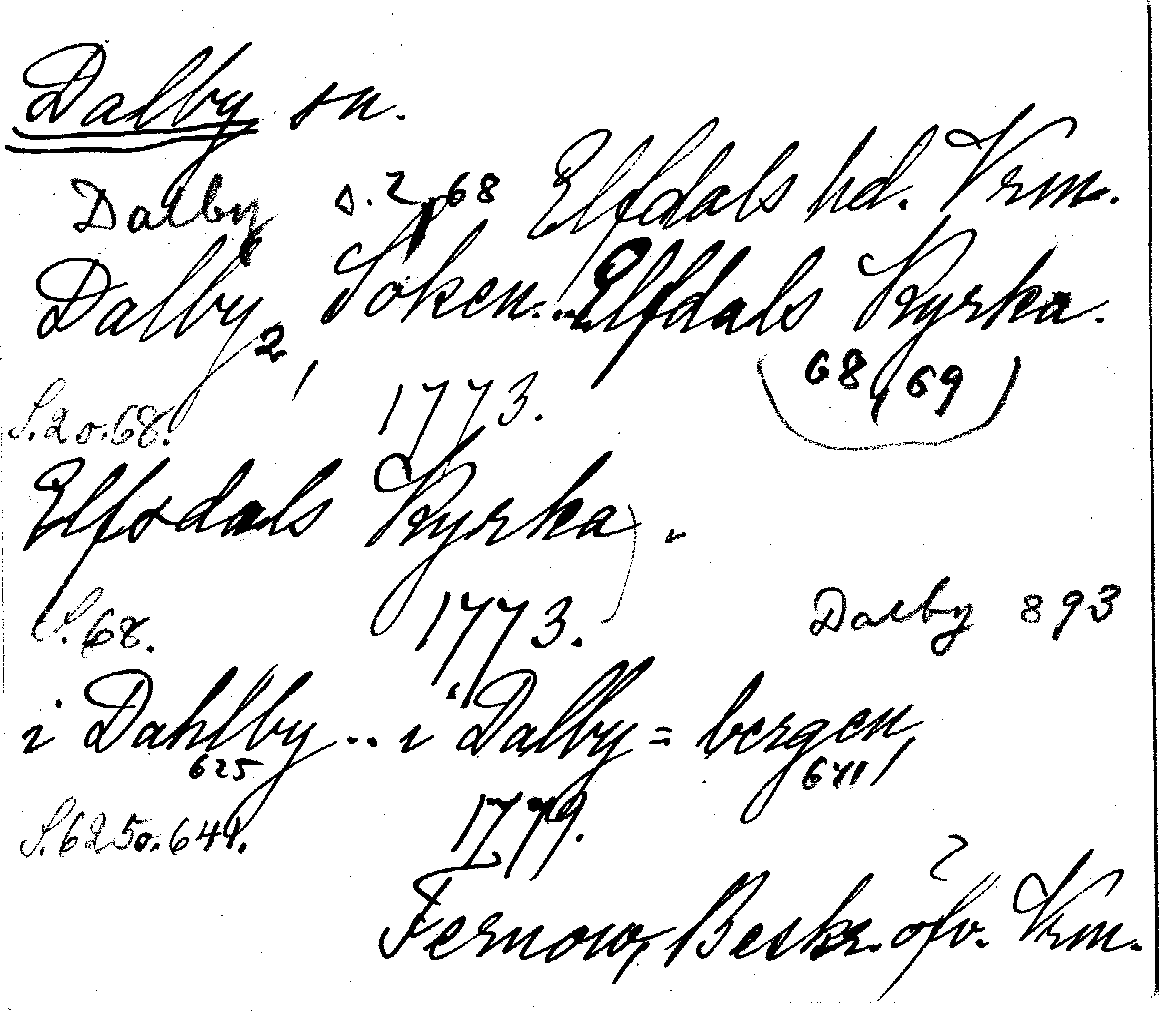 Dalby sn.
Dalby s. 2, 68 Elfdals hd. Vrm.
Dalby, Soken... Elfdals Kyrka.
2, (68, 69)
S. 2 o. 68. 1773.
Elfsdals Kyrka.
S. 68. 1773. Dalby 893
i Dahlby... i Dalby=bergen,
625 641,
S. 625 o. 641. 1779.
Fernow, Beskr. öfv. Vrm.